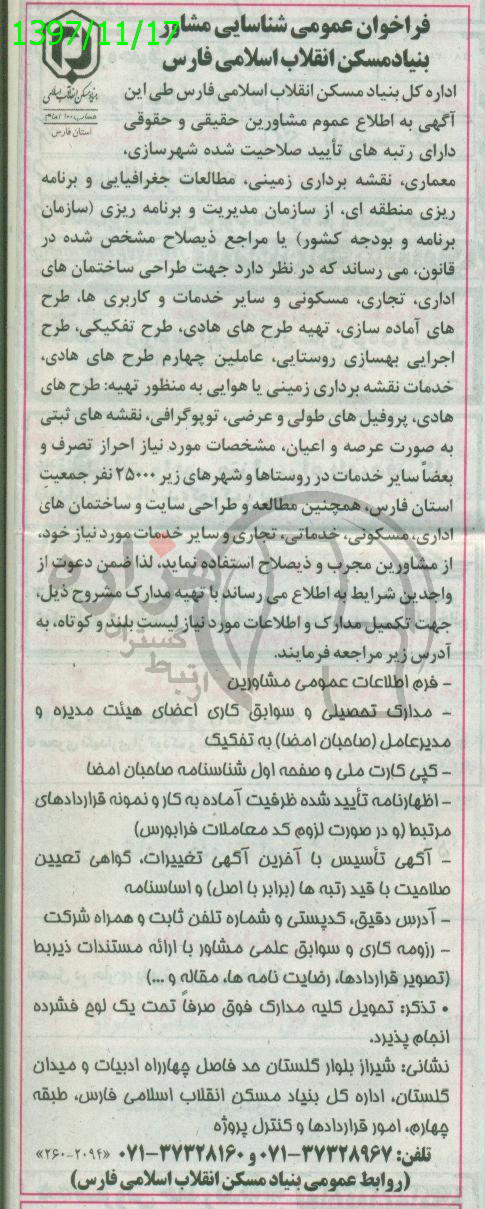 1397/11/17
فراخوان عمومی شناسایی مشاور
بنیادمسکن انقلاب اسلامی فارس
بنیاد مسکن انقلاب اسلامی
حساب ۱۰۰ امام
استان فارس
اداره کل بنیاد مسکن انقلاب اسلامی فارس طی این
آگهی به اطلاع عموم مشاورین حقیقی و حقوقی
دارای رتبه های تأیید صلاحیت شده شهرسازی،
معماری، نقشه برداری زمینی، مطالعات جغرافیایی و برنامه
ریزی منطقه ای، از سازمان مدیریت و برنامه ریزی (سازمان
برنامه و بودجه کشور) یا مراجع ذیصلاح مشخص شده در
قانون، می رساند که در نظر دارد جهت طراحی ساختمان های
اداری، تجاری، مسکونی و سایر خدمات و کاربری ها، طرح
های آماده سازی، تهیه طرح های هادی، طرح تفکیکی، طرح
اجرایی بهسازی روستایی، عاملین چهارم طرح های هادی،
خدمات نقشه برداری زمینی یا هوایی به منظور تهیه: طرح های
هادی، پروفیل های طولی و عرضی، توپوگرافی، نقشه های ثبتی
به صورت عرصه و اعیان، مشخصات مورد نیاز احراز تصرف و
بعضاً سایر خدمات در روستاها و شهرهای زیر ۲۵۰۰۰ نفر جمعیت
استان فارس، همچنین مطالعه و طراحی سایت و ساختمان های
اداری، مسکونی، خدماتی، تجاری و سایر خدمات مورد نیاز خود،
از مشاورین مجرب و ذیصلاح استفاده نماید، لذا ضمن دعوت از
واجدین شرایط به اطلاع می رساند با تهیه مدارک مشروح ذیل،
جهت تکمیل مدارک و اطلاعات مورد نیاز لیست بلند و کوتاه، به
آدرس زیر مراجعه فرمایند.
هزاره
گستران
ارتباط
- فرم اطلاعات عمومی مشاورین
- مدارک تحصیلی و سوابق کاری اعضای هیئت مدیره و
مدیرعامل (صاحبان امضا) به تفکیک
- کپی کارت ملی و صفحه اول شناسنامه صاحبان امضا
- اظهارنامه تأیید شده ظرفیت آماده به کار و نمونه قراردادهای
مرتبط (و در صورت لزوم کد معاملات فرابورس)
- آگهی تأسیس با آخرین آگهی تغییرات، گواهی تعیین
صلاحیت با قید رتبه ها (برابر با اصل) و اساسنامه
- آدرس دقیق، کدپستی و شماره تلفن ثابت و همراه شرکت
- رزومه کاری و سوابق علمی مشاور با ارائه مستندات ذیربط
(تصویر قراردادها، رضایت نامه ها، مقاله و ...)
• تذکر: تحویل کلیه مدارک فوق صرفاً تحت یک لوح فشرده
انجام پذیرد.
نشانی: شیراز بلوار گلستان حد فاصل چهارراه ادبیات و میدان
گلستان، اداره کل بنیاد مسکن انقلاب اسلامی فارس، طبقه
چهارم، امور قراردادها و کنترل پروژه
تلفن: ۳۷۳۲۸۹۶۷-۰۷۱ و ۳۷۳۲۸۱۶۰-۰۷۱ «۲۰۹۴-۲۶۰»
(روابط عمومی بنیاد مسکن انقلاب اسلامی فارس)